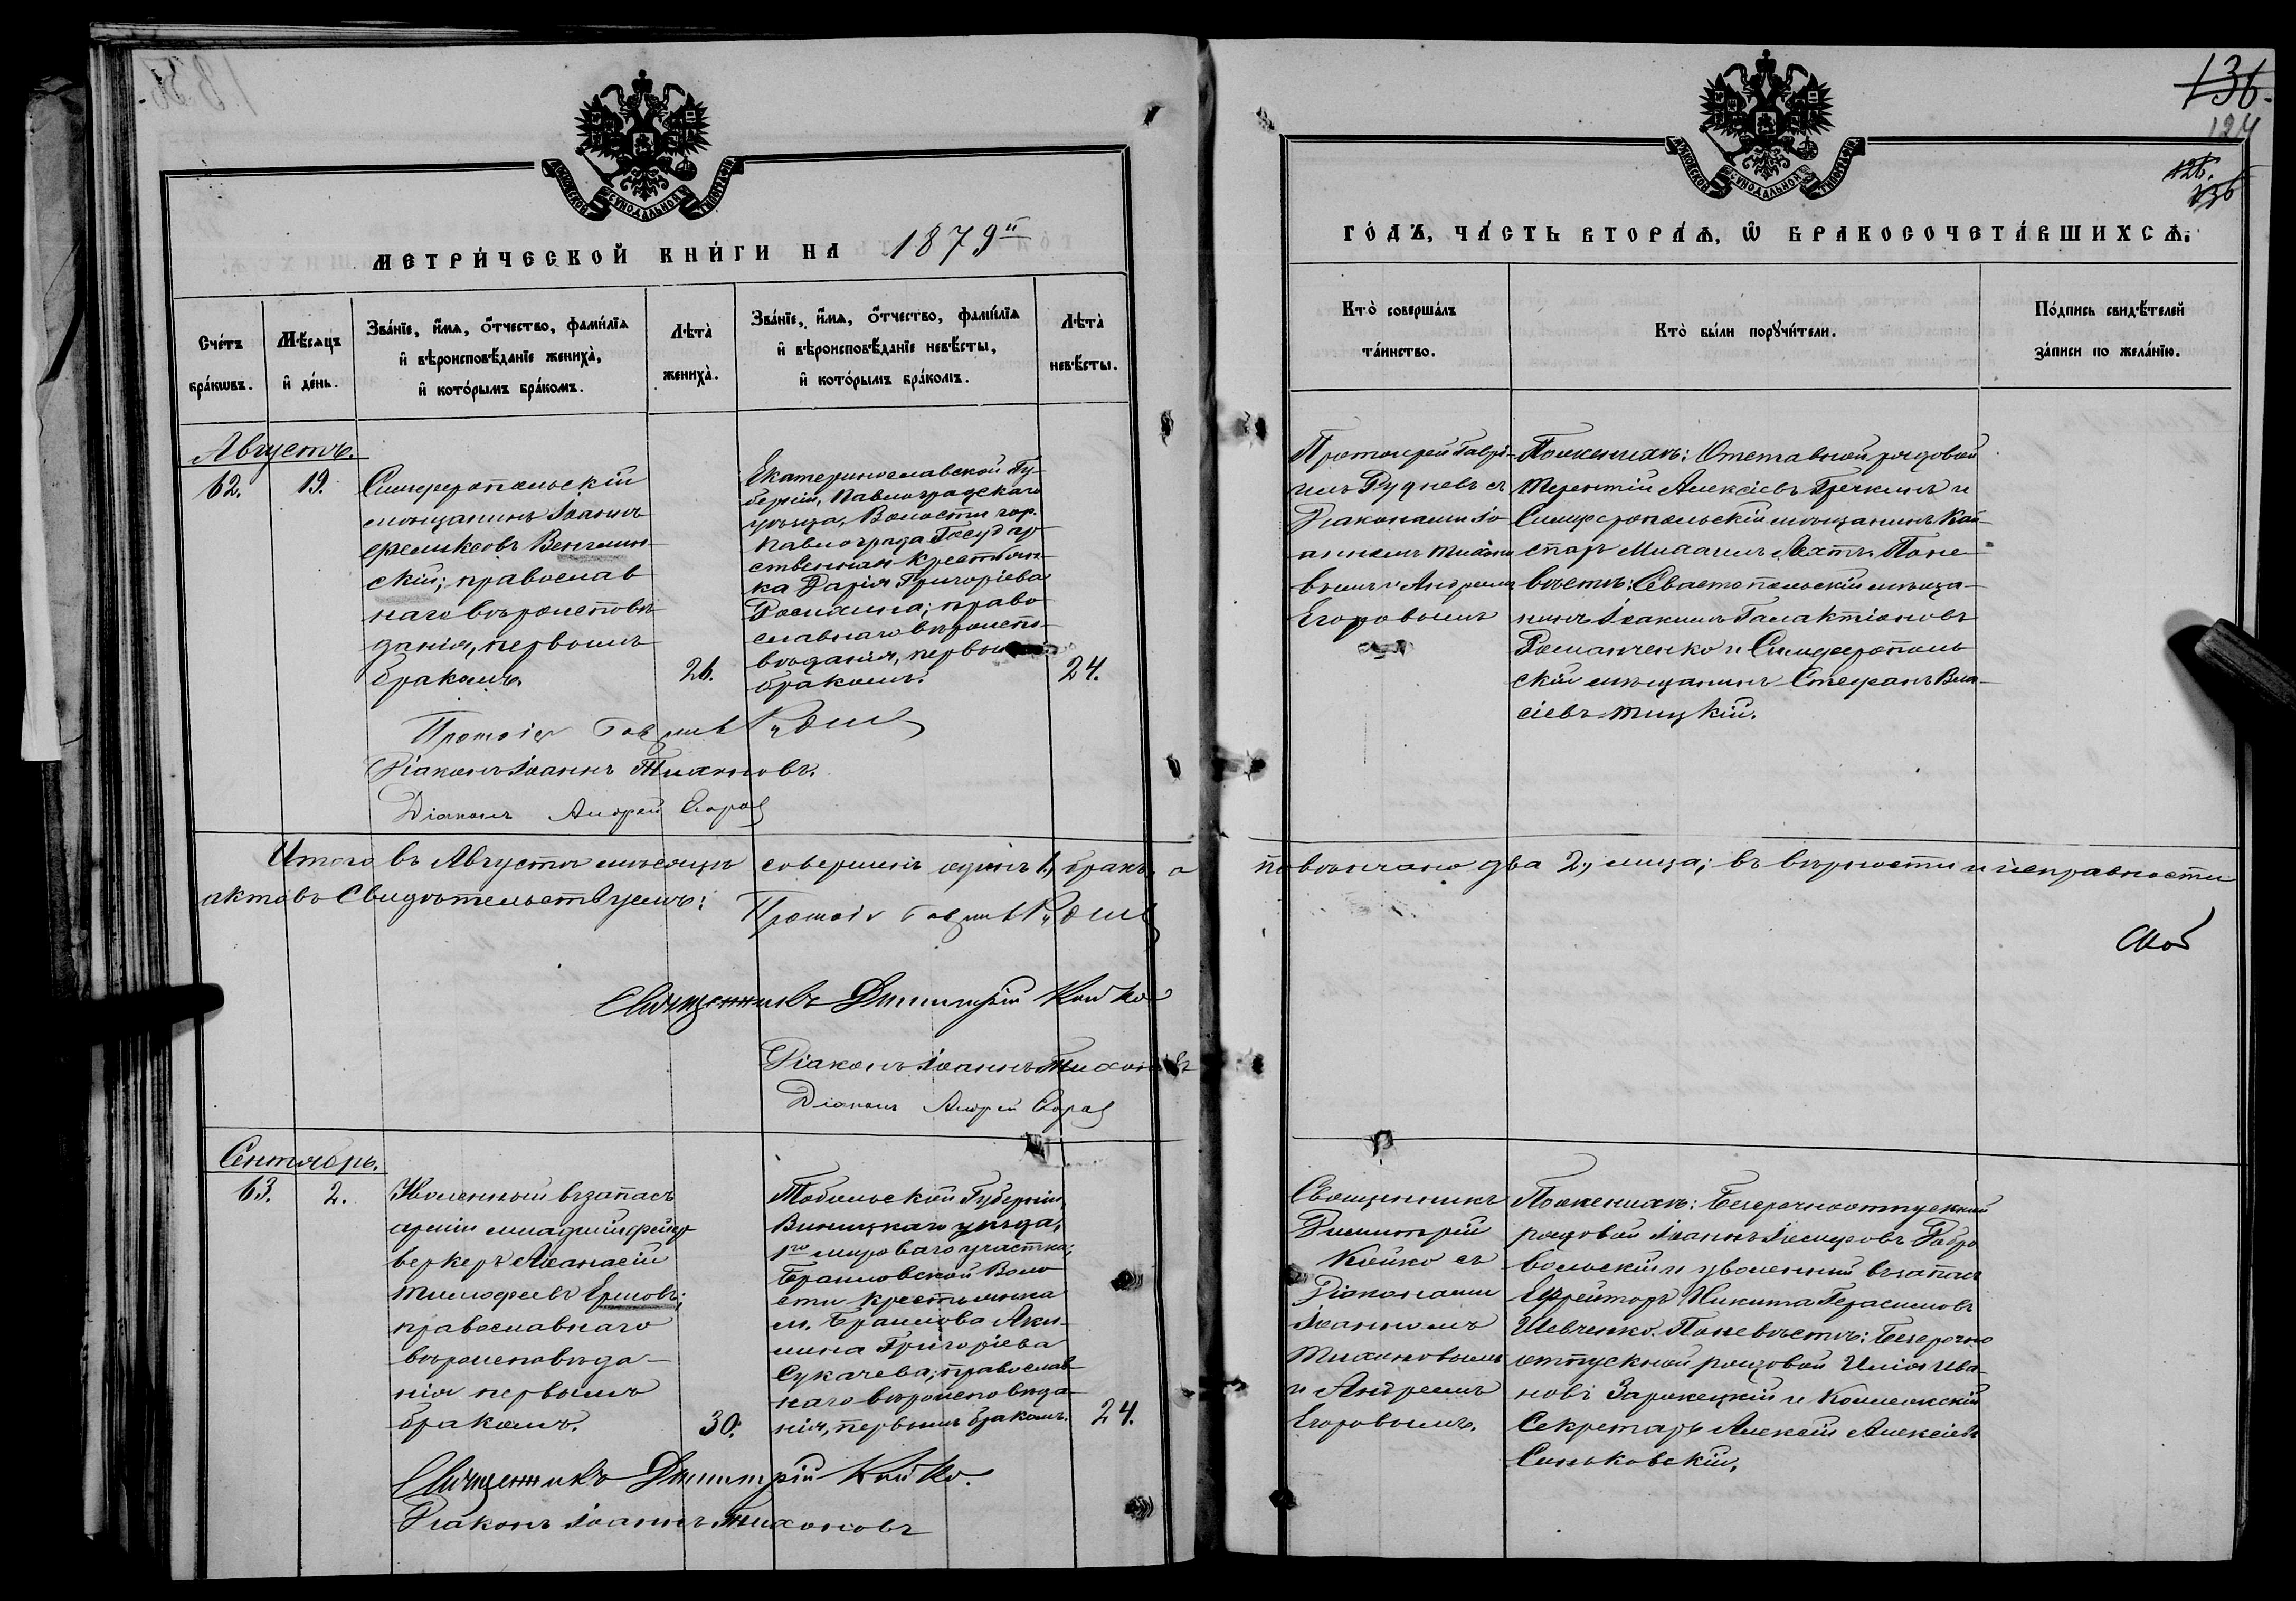 МОСКОВСКОЙ СѴНОДАЛЬНОЙ ТИПОГРАФІИ
МЕТРИ́ЧЕСКОЙ КНИ́ГИ НА 1879й
Сче́тъ бра́кωвъ.
Мѣ́сяцъ и҆ де́нь.
Зва́нїе, и҆́мѧ, ѻ҆́тчество, фамѝлїѧ
и҆ вѣроисповѣ́данїе жениха̀,
и҆ кото́рымъ бра́комъ.
Лѣта̀
жениха̀.
Зва́нїе, и҆́мѧ, ѻ҆́тчество, фамѝлїѧ
и҆ вѣроисповѣ́данїе невѣ́сты,
и҆ кото́рымъ бра́комъ.
Лѣта̀
невѣ́сты.
Августъ.
62.
19.
Симферопольскій
мѣщанинъ Іоаннъ
Феликсовъ Венгмин-
скій; православ
наго вѣроисповѣ
данія, первымъ
бракомъ.
26.
Екатеринославской Гу-
берніи, Павлоградскаго
уѣзда, Волости гор.
Павлограда Государ
ственная крестьян-
ка Дарія Григоріева
; право
славнаго вѣроиспо-
вѣданія, первы
бракомъ.
24.
Протоіер Гавріилъ Рудневъ
Діаконъ Іоаннъ Тихоновъ.
Діаконъ Андрей Егоровъ
Итого въ Августѣ мѣсяцѣ совершенъ одинъ 1, бракъ, а
актовъ свидѣтельствуемъ:
Протоіер Гавріилъ Рудневъ
Священникъ Димитрій Койко
Діаконъ Іоаннъ Тихоновъ
Діаконъ Андрей Егоровъ
Сентябрь.
63.
2.
Уволенный въ запасъ
арміи младшій фейер
веркеръ Аѳанасій
Тимофеевъ Ермовъ;
православнаго
вѣроисповѣда-
нія первымъ
бракомъ.
30.
Тобольской Губерніи,
Виницкаго уѣзда,
1го мироваго участка;
Браиловской Воло
сти крестьянка
м. Браилова Аки-
лина Григоріева
Сукачева; православ-
наго вѣроисповѣда-
нія, первымъ бракомъ.
24.
Священникъ Димитрій Койко.
Діаконъ Іоаннъ Тихоновъ
136.
124
126.
136
МОСКОВСКОЙ СѴНОДАЛЬНОЙ ТИПОГРАФІИ
ГО́ДЪ, ЧА́СТЬ ВТОРА́Ѧ, Ѽ БРАКОСОЧЕТА́ВШИХСѦ.
Кто̀ соверша́лъ
та́инство.
Кто̀ бы́ли порꙋчи́тели.
По́дпись свидѣ́телей
за́писи по жела́нїю.
Протоіерей Гаврі-
илъ Рудневъ съ
Діаконами Іо
анномъ Тихоно
вымъ и Андреемъ
Егоровымъ
По женихѣ: Отставной рядовой
Терентій Алексіевъ Гречкинъ и
Симферопольскій мѣщанинъ Ка-
спаръ Михаилъ Лехтъ. По не
вѣстѣ: Севастопольскій мѣща-
нинъ Іоакимъ Галактіоновъ
Романченко и Симферополь
скій мѣщанинъ Стефанъ Вла-
сіевъ Тицкій.
повѣнчано два 2, лица; въ вѣрности и исправности
Священникъ
Димитрій
Койко съ
Діаконами
Іоанномъ
Тихоновымъ
и Андреемъ
Егоровымъ.
По женихѣ: Безсрочноотпускной
рядовой Іоаннъ Іосифовъ Добро
вольскій и уволенный въ запасъ
Ефрейторъ Никита Герасимовъ
Шевченко. По невѣстѣ: Безсрочно
отпускной рядовой Илія Ива
новъ Заржецкій и Коллежскій
Секретарь Алексій Алексіевъ
Синьковскій.